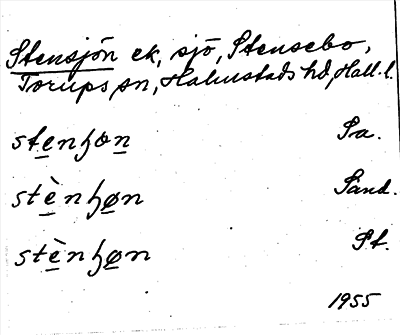 Stensjön ek, sjö, Stensebo,
Torups sn, Halmstads hd, Hall. l.
stenʃon Sa.
stènʃøn Sand.
stènʃøn St.
1955